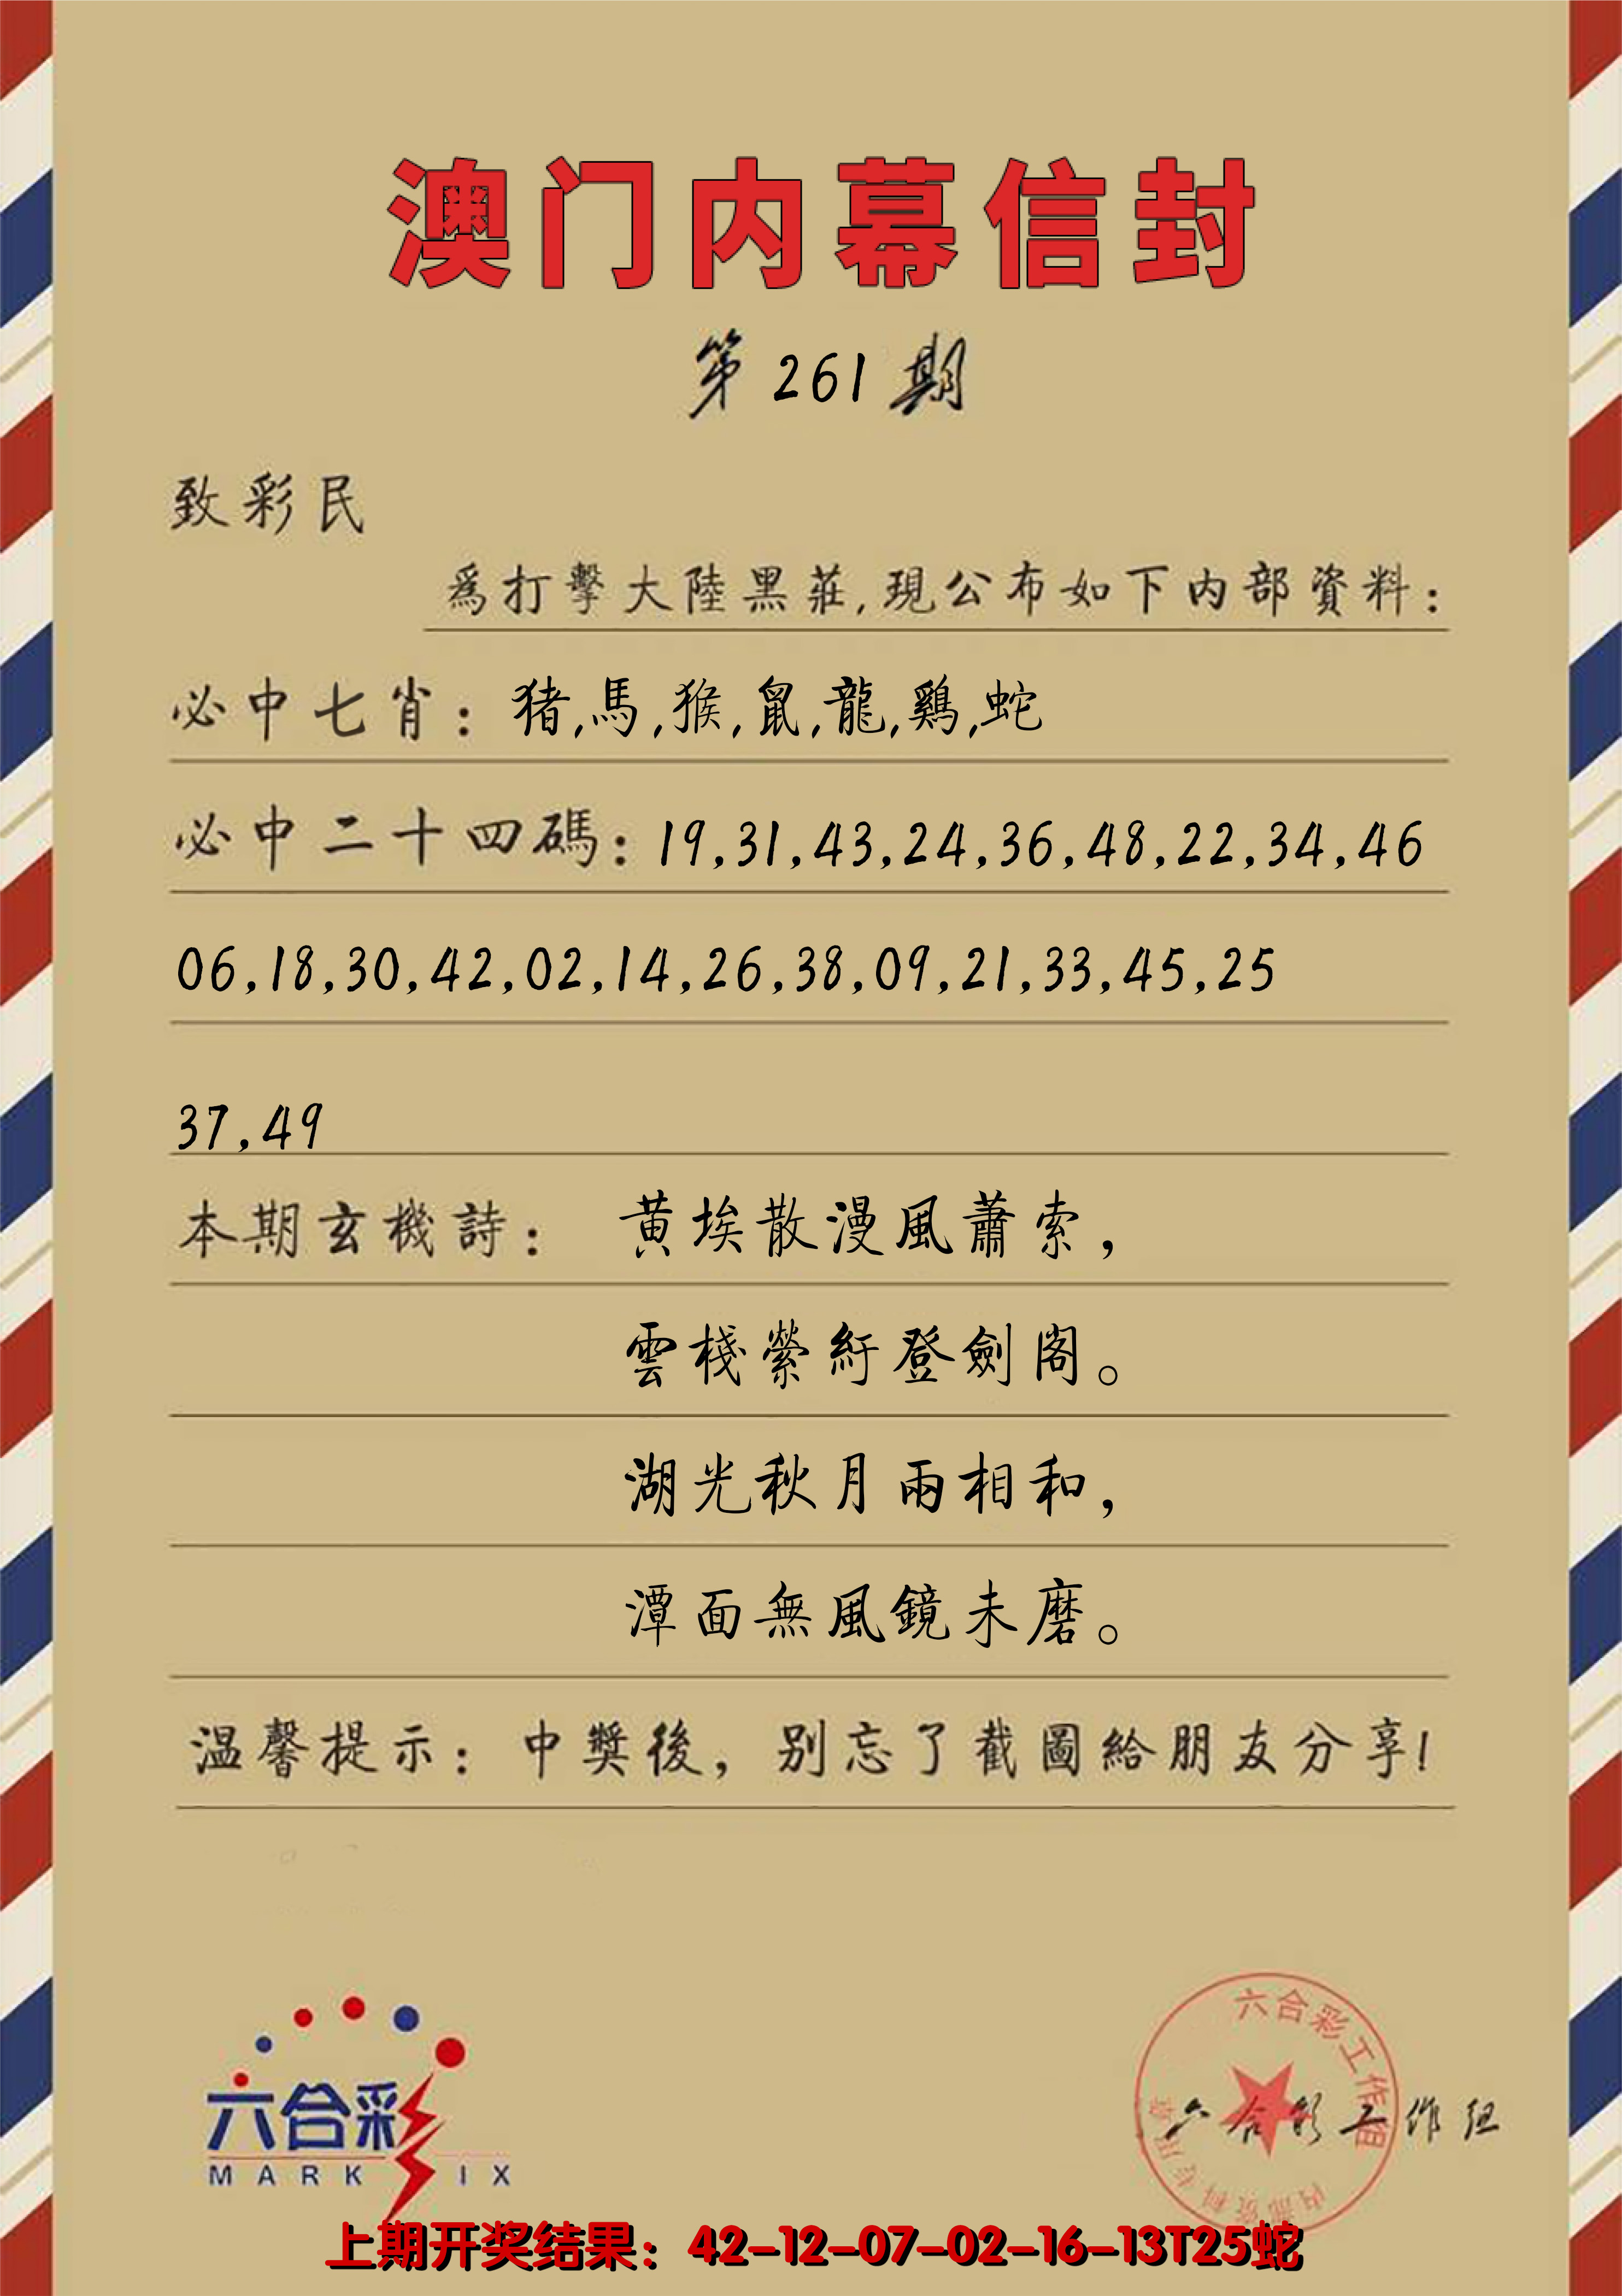 澳门内幕信封
第261期
致彩民
為打擊大陸黑莊,現公布如下内部資料:
必中七肖:猪,馬,猴,鼠,龍,鷄,蛇
必中二十四碼:19,31,43,24,36,48,22,34,46
06,18,30,42,02,14,26,38,09,21,33,45,25
37,49
本期玄機詩: 黄埃散漫風蕭索,
雲棧縈紆登劍閣。
湖光秋月兩相和,
潭面無風鏡未磨。
温馨提示:中獎後,别忘了截圖給朋友分享!
六合彩
MARK IX
六合彩工作组
内部资料专用章
六合彩工作组
上期开奖结果:42-12-07-02-16-13T25蛇